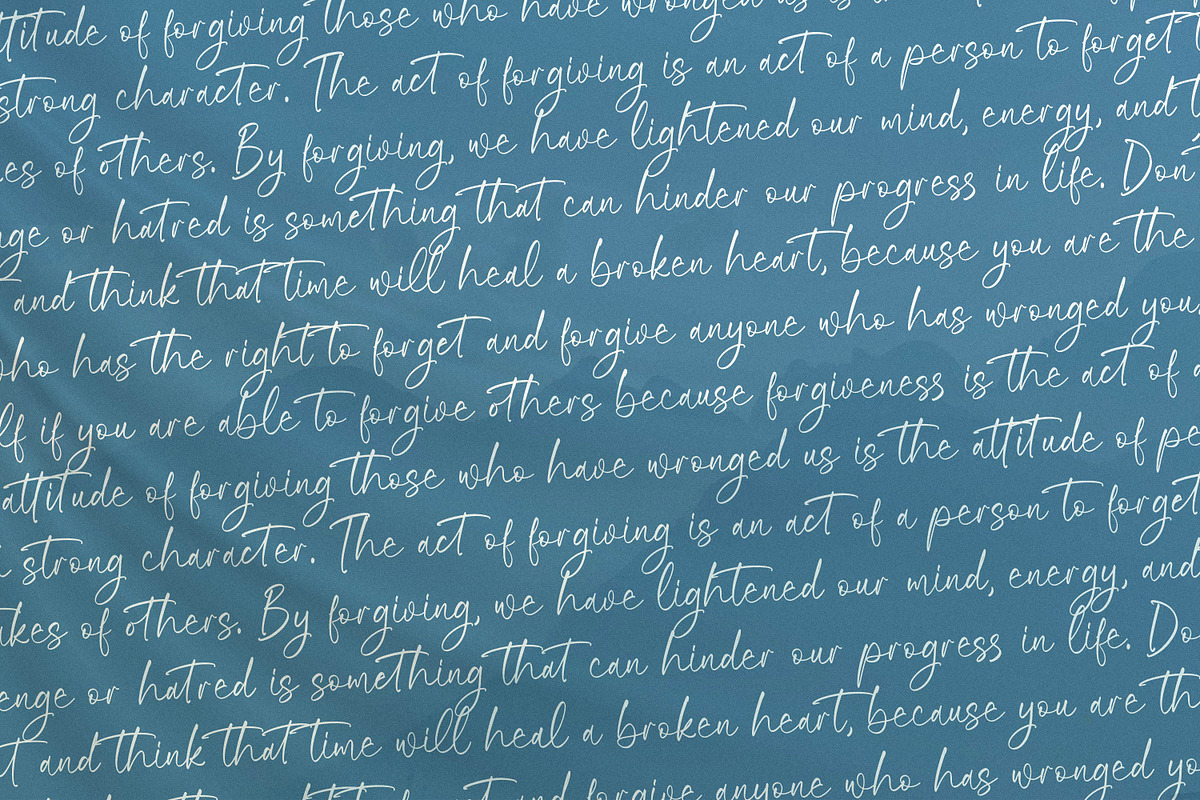 ttitude of forgiving those who have wronged us is
strong character. The act of forgiving is an act of a person to forget t
es of others. By forgiving, we have lightened our mind, energy, and t
nge or hatred is something that can hinder our progress in life. Don'
and think that time will heal a broken heart, because you are the
ho has the right to forget and forgive anyone who has wronged you
lf if you are able to forgive others because forgiveness is the act of a
attitude of forgiving those who have wronged us is the attitude of pe
strong character. The act of forgiving is an act of a person to forget
akes of others. By forgiving, we have lightened our mind, energy, and
enge or hatred is something that can hinder our progress in life. Do
t and think that time will heal a broken heart, because you are th
forgive anyone who has wronged yo